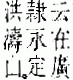 云在廣
隸永定
洪濤山